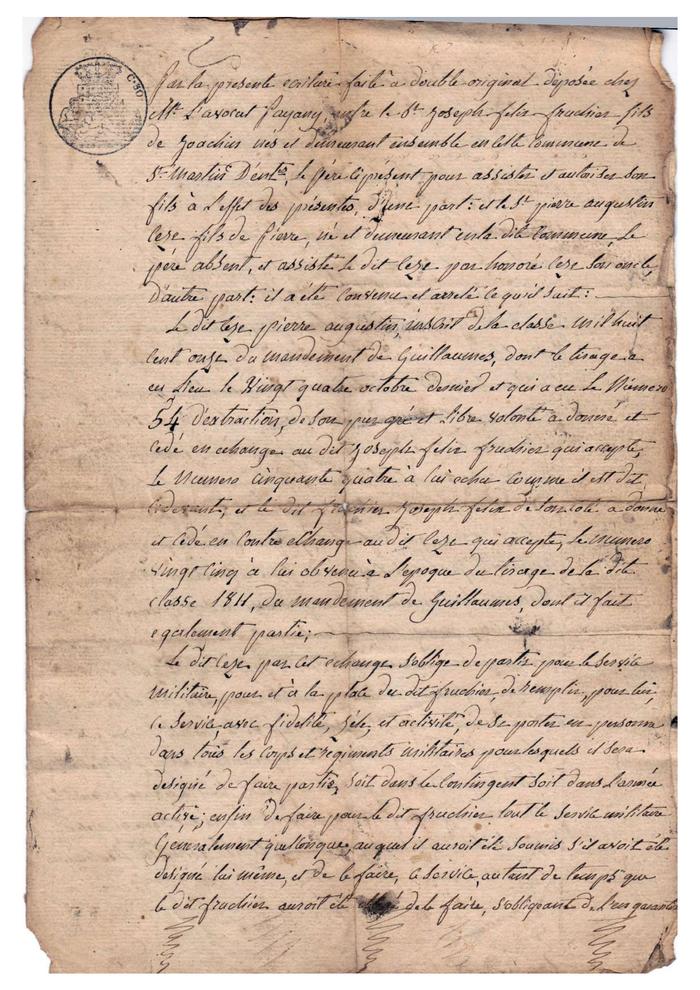 C. 50
Par la presente ecriture faite a double original deposée chez
Mtre L'avocat Payany, entre le Sr Joseph felix fruchier fils
de Joachin nés et demeurant ensemble en cette Commune de
St Martin D'entes, le père ici présent pour assister et autoriser son
fils à L'effet des présentes, D'une part: et le Sr pierre augustin
Ceze fils de pierre, né et demeurant en la dite Commune, Le
père absent, et assisté le dit Ceze par honoré Ceze son oncle,
D'autre part: il a été convenu et arreté ce qu'il suit:
Le dit Ceze pierre augustin, inscrit de la classe mil huit
cent onze du mandement de Guillaumes, dont le tirage a
eu Lieu le Vingt quatre octobre dernier et qui a eu Le Numero
54 d'extraction, de son pur gré et Libre volonté a donné et
cedé en echange au dit Joseph felix fruchier qui accepte,
Le Numero cinquante quatre à lui echu comme il est dit
cidevant, et le dit fruchier Joseph felix de son coté a donné
et cedé en contre echange au dit Ceze qui accepte, Le numero
vingt cinq à lui obvenu à L'epoque du tirage de la dite
classe 1811, du mandement de Guillaumes, dont il fait
egalement partie;
Le dit Ceze par cet echange s'oblige de partir pour le service
militaire, pour et à la place du dit fruchier, de remplir, pour lui,
ce service, avec fidelité, zéle, et activité, de se porter en personne
dans tous les corps et régiments militaires pour lesquels il sera
designé de faire partie, soit dans le Contingent soit dans l'armée
active; enfin de faire pour le dit fruchier tout le service militaire
Généralement quelconque, auquel il auroit été soumis s'il avoit été
designé lui même, et de le faire, ce service, autant de temps que
le dit fruchier auroit été de le faire, s'obligeant de l'en garantir